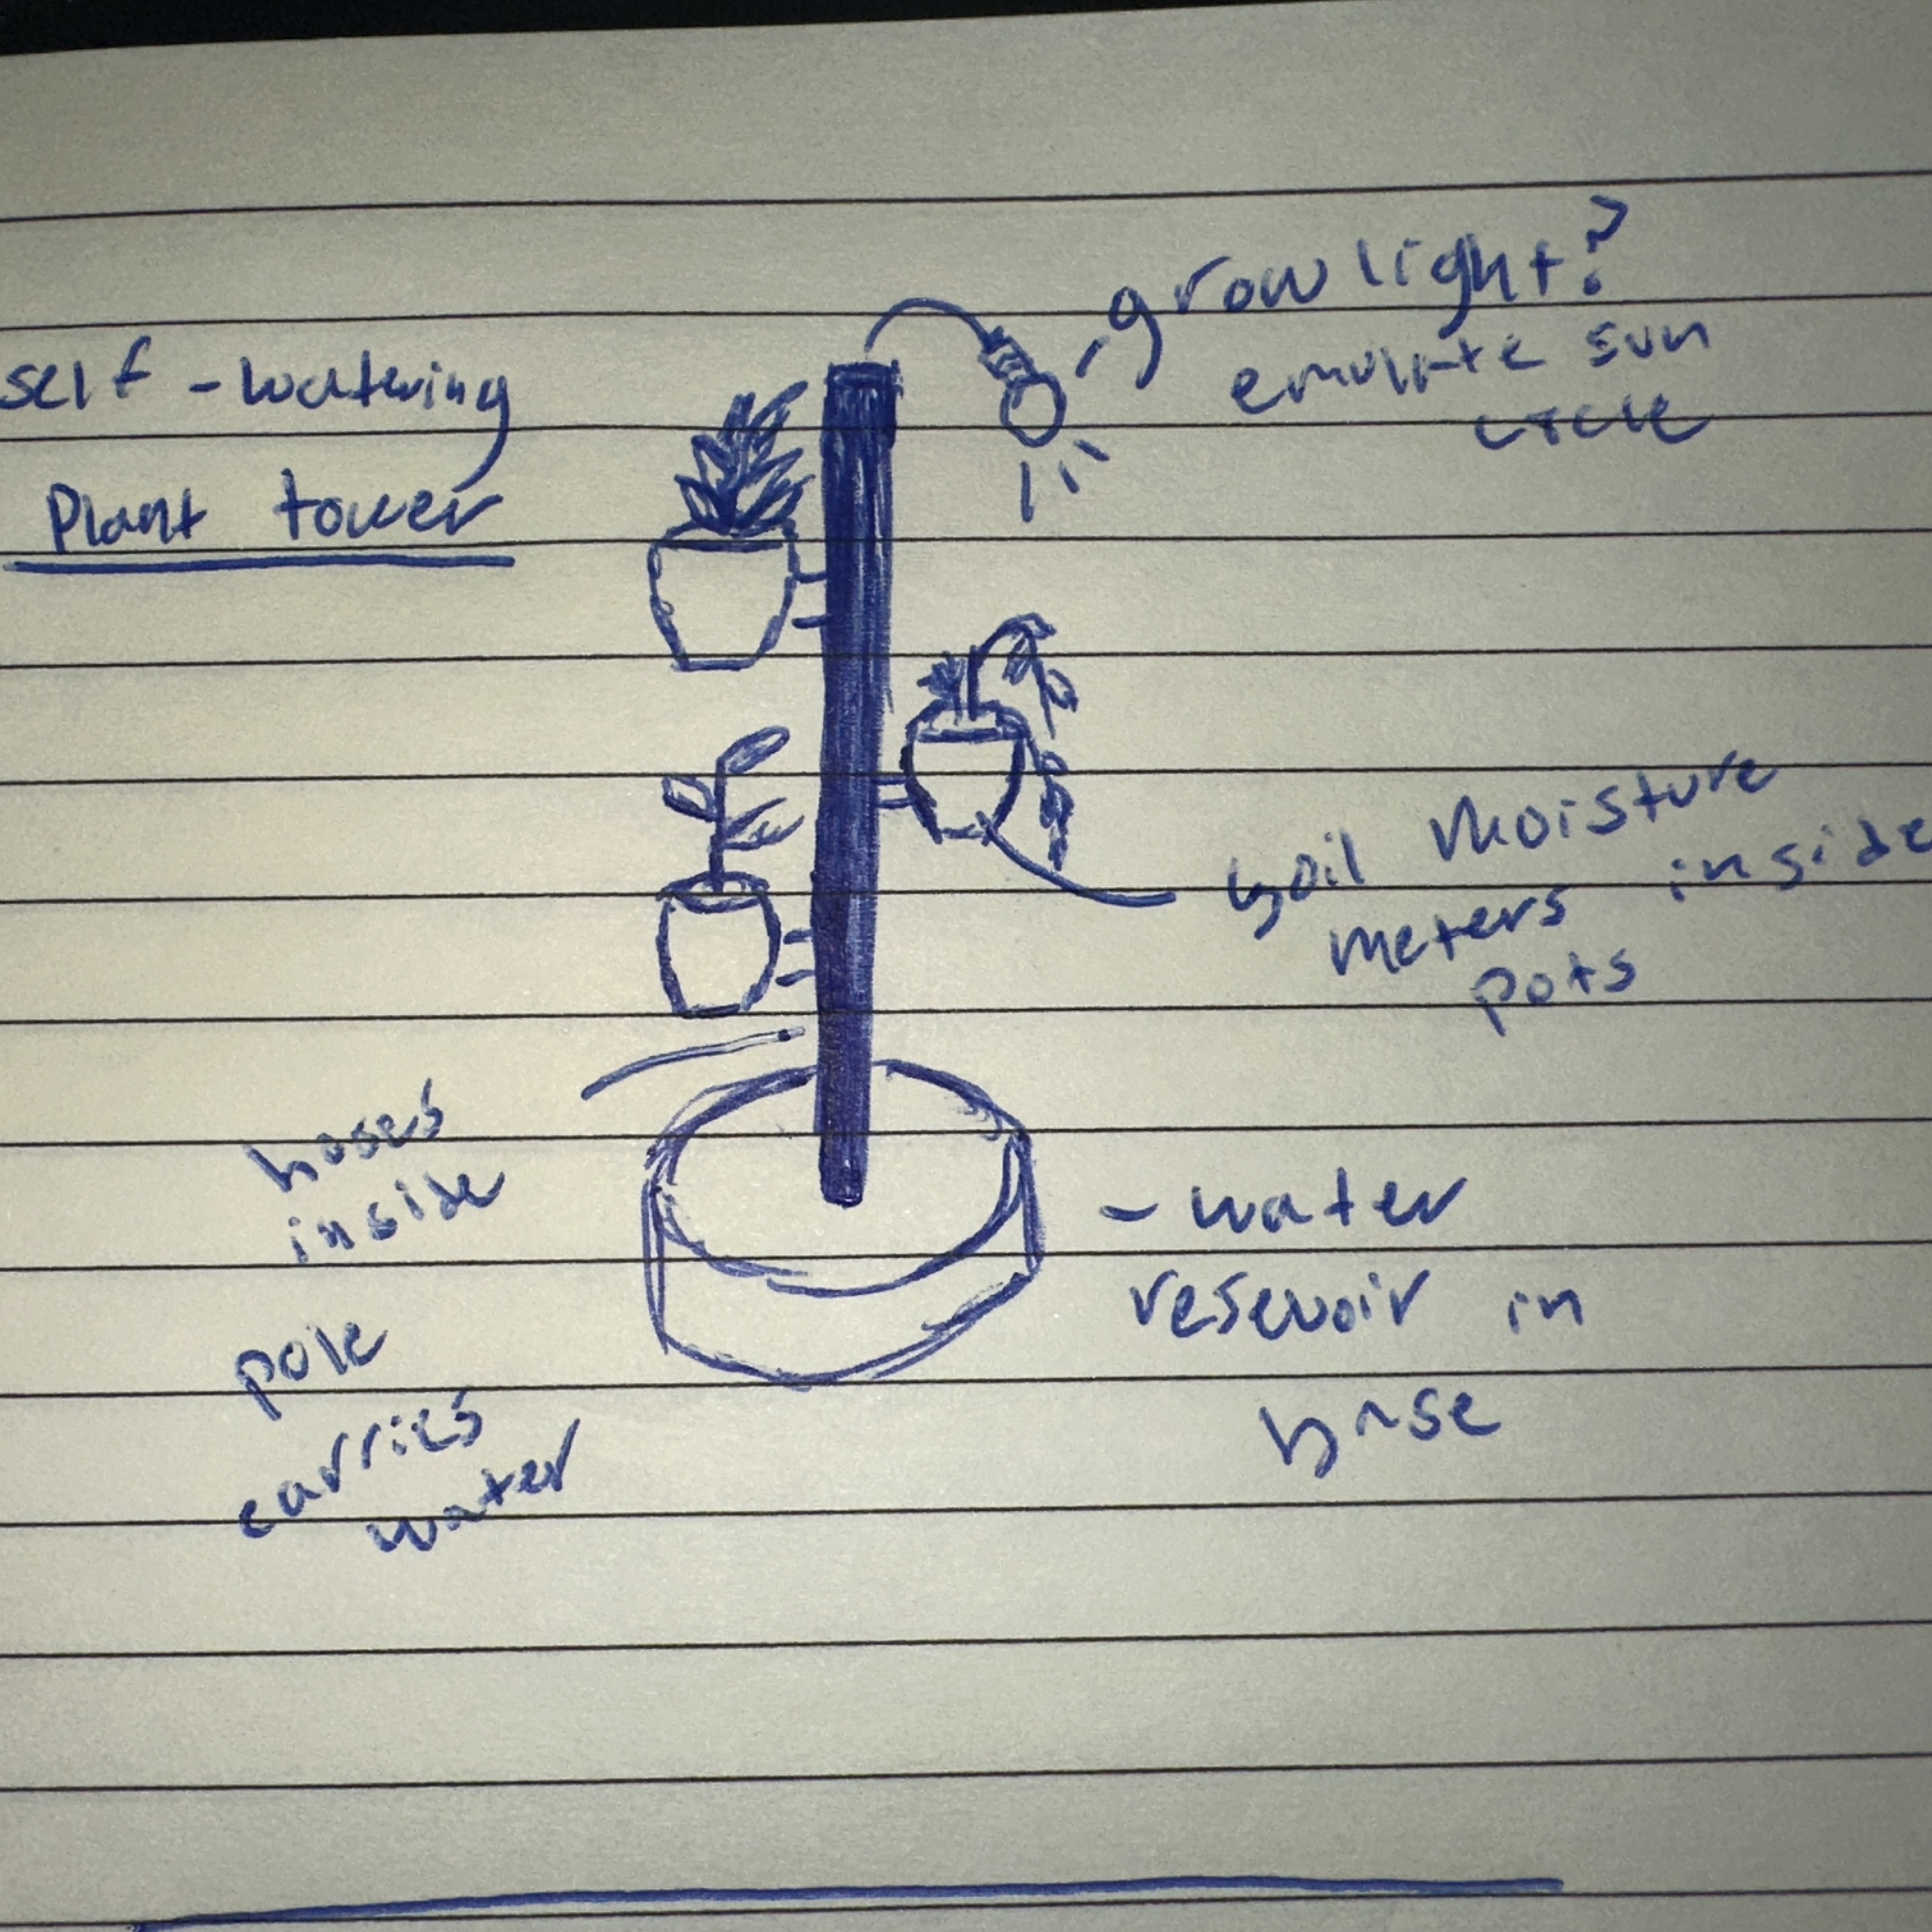 self - watering
Plant tower
- grow light?
emulate sun
cycle
soil moisture
meters inside
pots
hoses
inside
pole
carries
water
- water
resevoir in
base